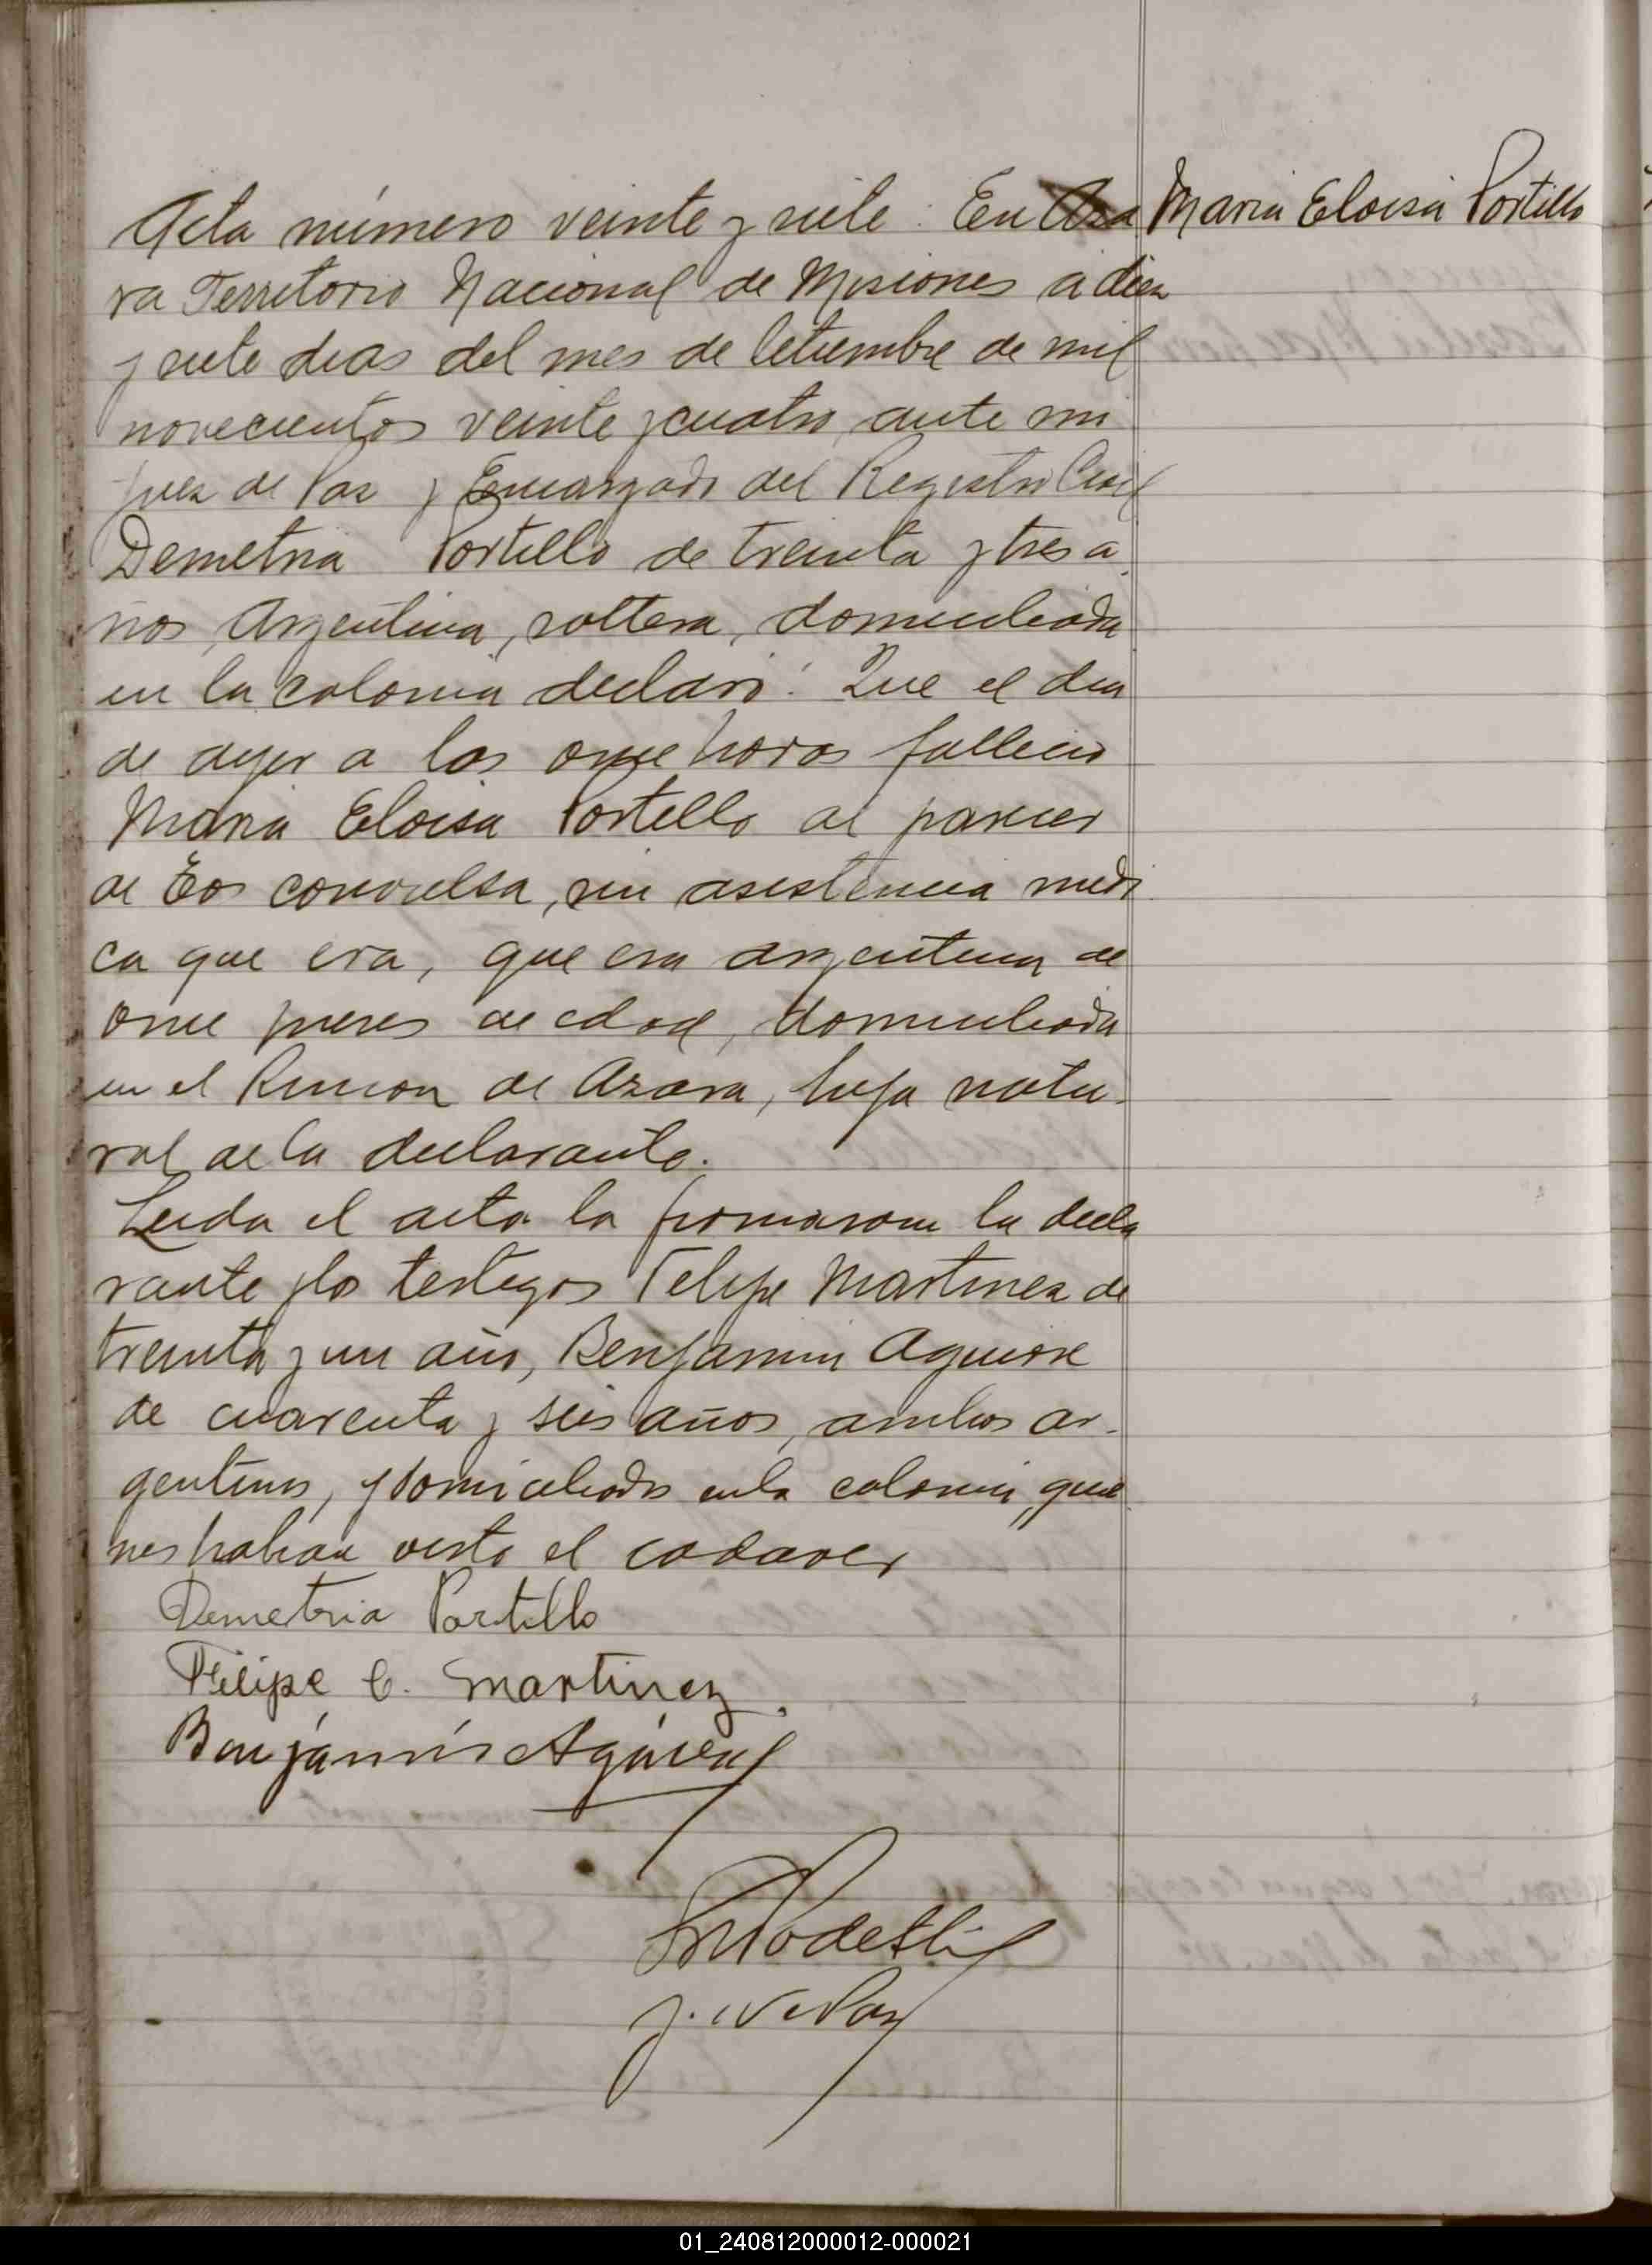 Acta número veinte y siete. En Aza
Maria Eloisa Portillo
ra Territorio Nacional de Misiones a diez
y siete dias del mes de Setiembre de mil
novecientos veinte y cuatro, ante mi
Juez de Paz y Encargado del Registro Civil
Demetria Portillo de treinta y tres a
ños, Argentina, soltera, domiciliada
en la colonia declaró: Que el dia
de ayer a las once horas fallecio
Maria Eloisa Portillo al parecer
de Tos convulsa, sin asistencia medi
ca que era, que era argentina de
once meses de edad, domiciliada
en el Rincon de Azara, hija natu-
ral de la declarante.
Leida el acta la firmaron la decla
rante y los testigos Felipe Martinez de
treinta y un año, Benjamin Aguirre
de cuarenta y seis años, ambos ar-
gentinos, y domiciliados en la colonia, quie
nes habian visto el cadaver
Demetria Portillo
Felipe C. Martinez
Benjamin
J. de Paz
01_240812000012-000021